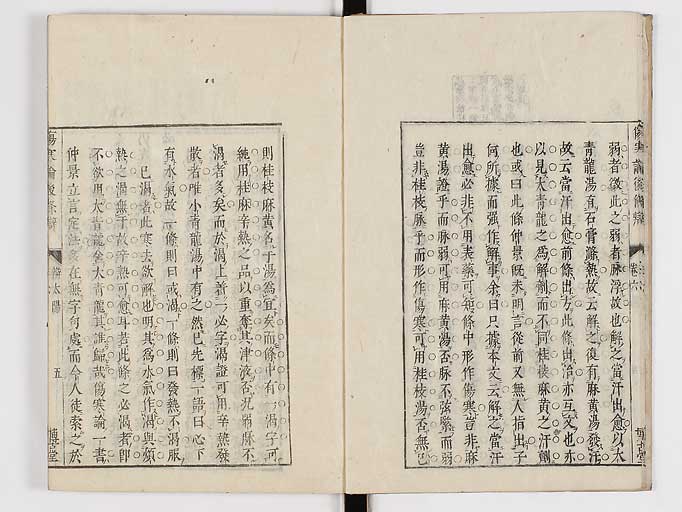 傷寒論後條辨 卷六
弱者故此之弱者脉浮故也解之當汗出愈以大
青龍湯有石膏滌熱故云解之復有麻黃湯發汗
故云當汗出愈前條出方此條出治亦互文也亦
以見大青龍之為解劑而不同桂枝麻黃之汗劑
也或曰此條仲景既未明言從前又無人指出子
何所據而强作解事余曰只據本文云解之當汗
出愈必非不用表藥可知條中形作傷寒豈非麻
黃湯證乎而脉弱可用麻黃湯否脉不弦緊而弱
豈非桂枝脉乎而形作傷寒可用桂枝湯否無已
則桂枝麻黃各
于湯為宜矣而條中有一渴字可
純用桂麻辛熱之品以重奪其津液否況弱脉不
渴者多矣而於渴上著一必字渴證可用辛熱發
散者唯小青龍湯中有之然已先標一語曰心下
有水氣故一條則曰或渴一條則曰發熱不渴服
已渴者此寒去欲解也明其為水氣作渴與煩
熱之渴無干故辛熱可愈耳若此條之必渴者即
不欲用大青龍舍大青龍其誰歸哉傷寒論一書
仲景立言定法多在無字句處而今人徒索之於
傷寒論後條辨 辨太陽 五 博古堂